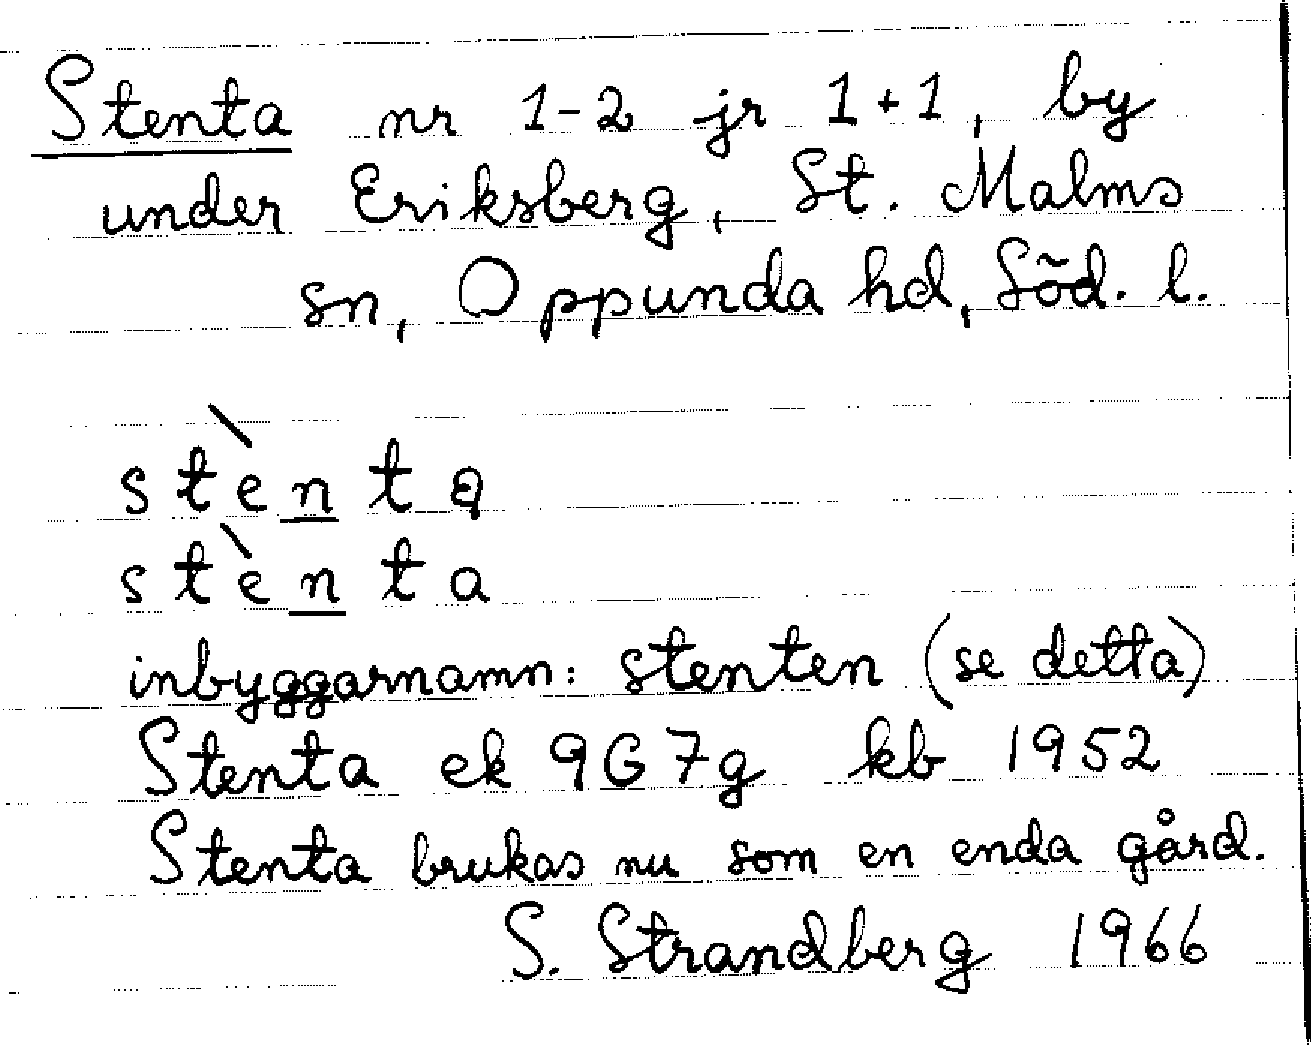 Stenta nr 1-2 jr 1+1, by
under Eriksberg, St. Malms
sn, Oppunda hd, Söd. l.
stènta
stènta
inbyggarnamn: stenten (se detta)
Stenta ek 9G7g kb 1952
Stenta brukas nu som en enda gård.
S. Strandberg 1966